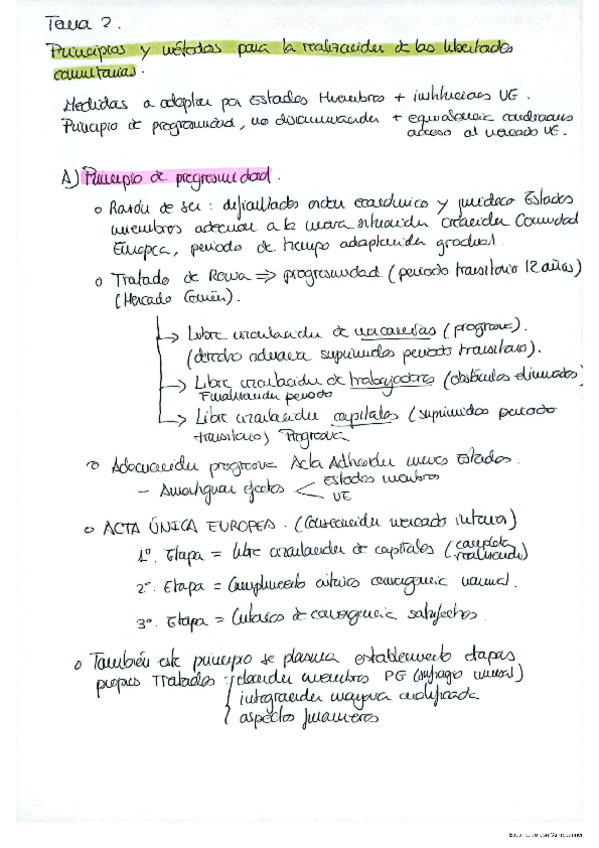 Tema 2.
Principios y métodos para la realización de las libertades
comunitarias.
Medidas a adoptar por Estados Miembros + instituciones UE.
Principio de progresividad, no discriminación + equivalencia condiciones
acceso al mercado UE.
A) Principio de progresividad.
o Razón de ser: dificultades orden económico y jurídico Estados
miembros adecuar a la nueva situación creación Comunidad
Europea, periodo de tiempo adaptación gradual.
o Tratado de Roma => progresividad (periodo transitorio 12 años)
(Mercado Común).
→ Libre circulación de mercancías (progresiva).
(derecho aduana suprimidos periodo transitorio).
→ Libre circulación de trabajadores (obstáculos eliminados)
Finalización periodo
→ Libre circulación capitales (suprimidos periodo
transitorio) Progresiva
o Adecuación progresiva Acta Adhesión nuevos Estados.
- Amortiguar efectos < Estados miembros
UE
o ACTA ÚNICA EUROPEA. (Consecución mercado interior)
1º. Etapa = libre circulación de capitales (completa
realización)
2º. Etapa = Cumplimiento criterios convergencia nominal.
3º. Etapa = Criterios de convergencia satisfechos.
o También este principio se plasma establecimiento etapas
propios Tratados: elección miembros PE (sufragio universal)
integración mayoría cualificada
aspectos financieros